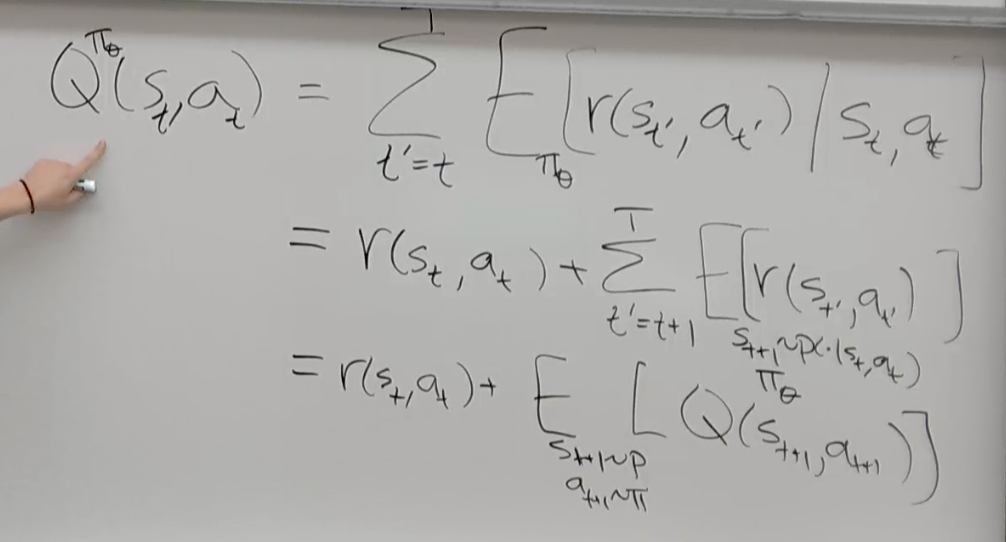 Q^{π_θ}(s_t, a_t) = Σ_{t'=t}^{T} E_{π_θ}[r(s_{t'}, a_{t'}) | s_t, a_t]
= r(s_t, a_t) + Σ_{t'=t+1}^{T} E_{s_{t+1}~p(·|s_t, a_t)}[r(s_{t'}, a_{t'})]
= r(s_t, a_t) + E_{s_{t+1}~p, a_{t+1}~π}[Q^{π_θ}(s_{t+1}, a_{t+1})]